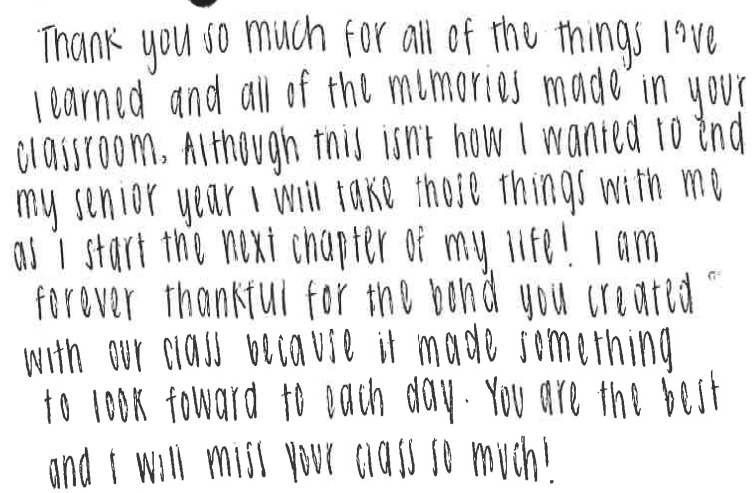 Thank you so much for all of the things I've
learned and all of the memories made in your
classroom. Although this isn't how I wanted to end
my senior year I will take those things with me
as I start the next chapter of my life! I am
forever thankful for the bond you created
with our class because it made something
to look foward to each day. You are the best
and I will miss your class so much!